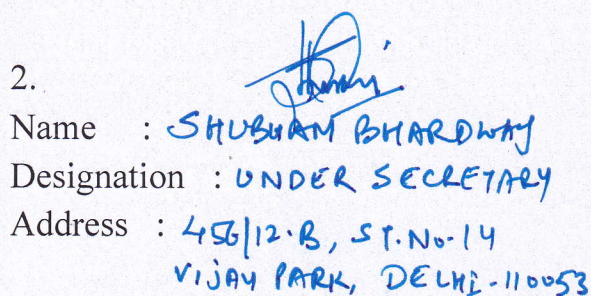 2.
Name : SHUBHAM BHARDWAJ
Designation : UNDER SECRETARY
Address : 456/12-B, ST.No-14
VIJAY PARK, DELHI-110053